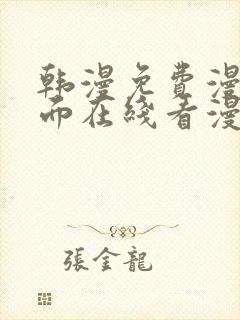 韩漫免费漫
而在线看漫
張金龍